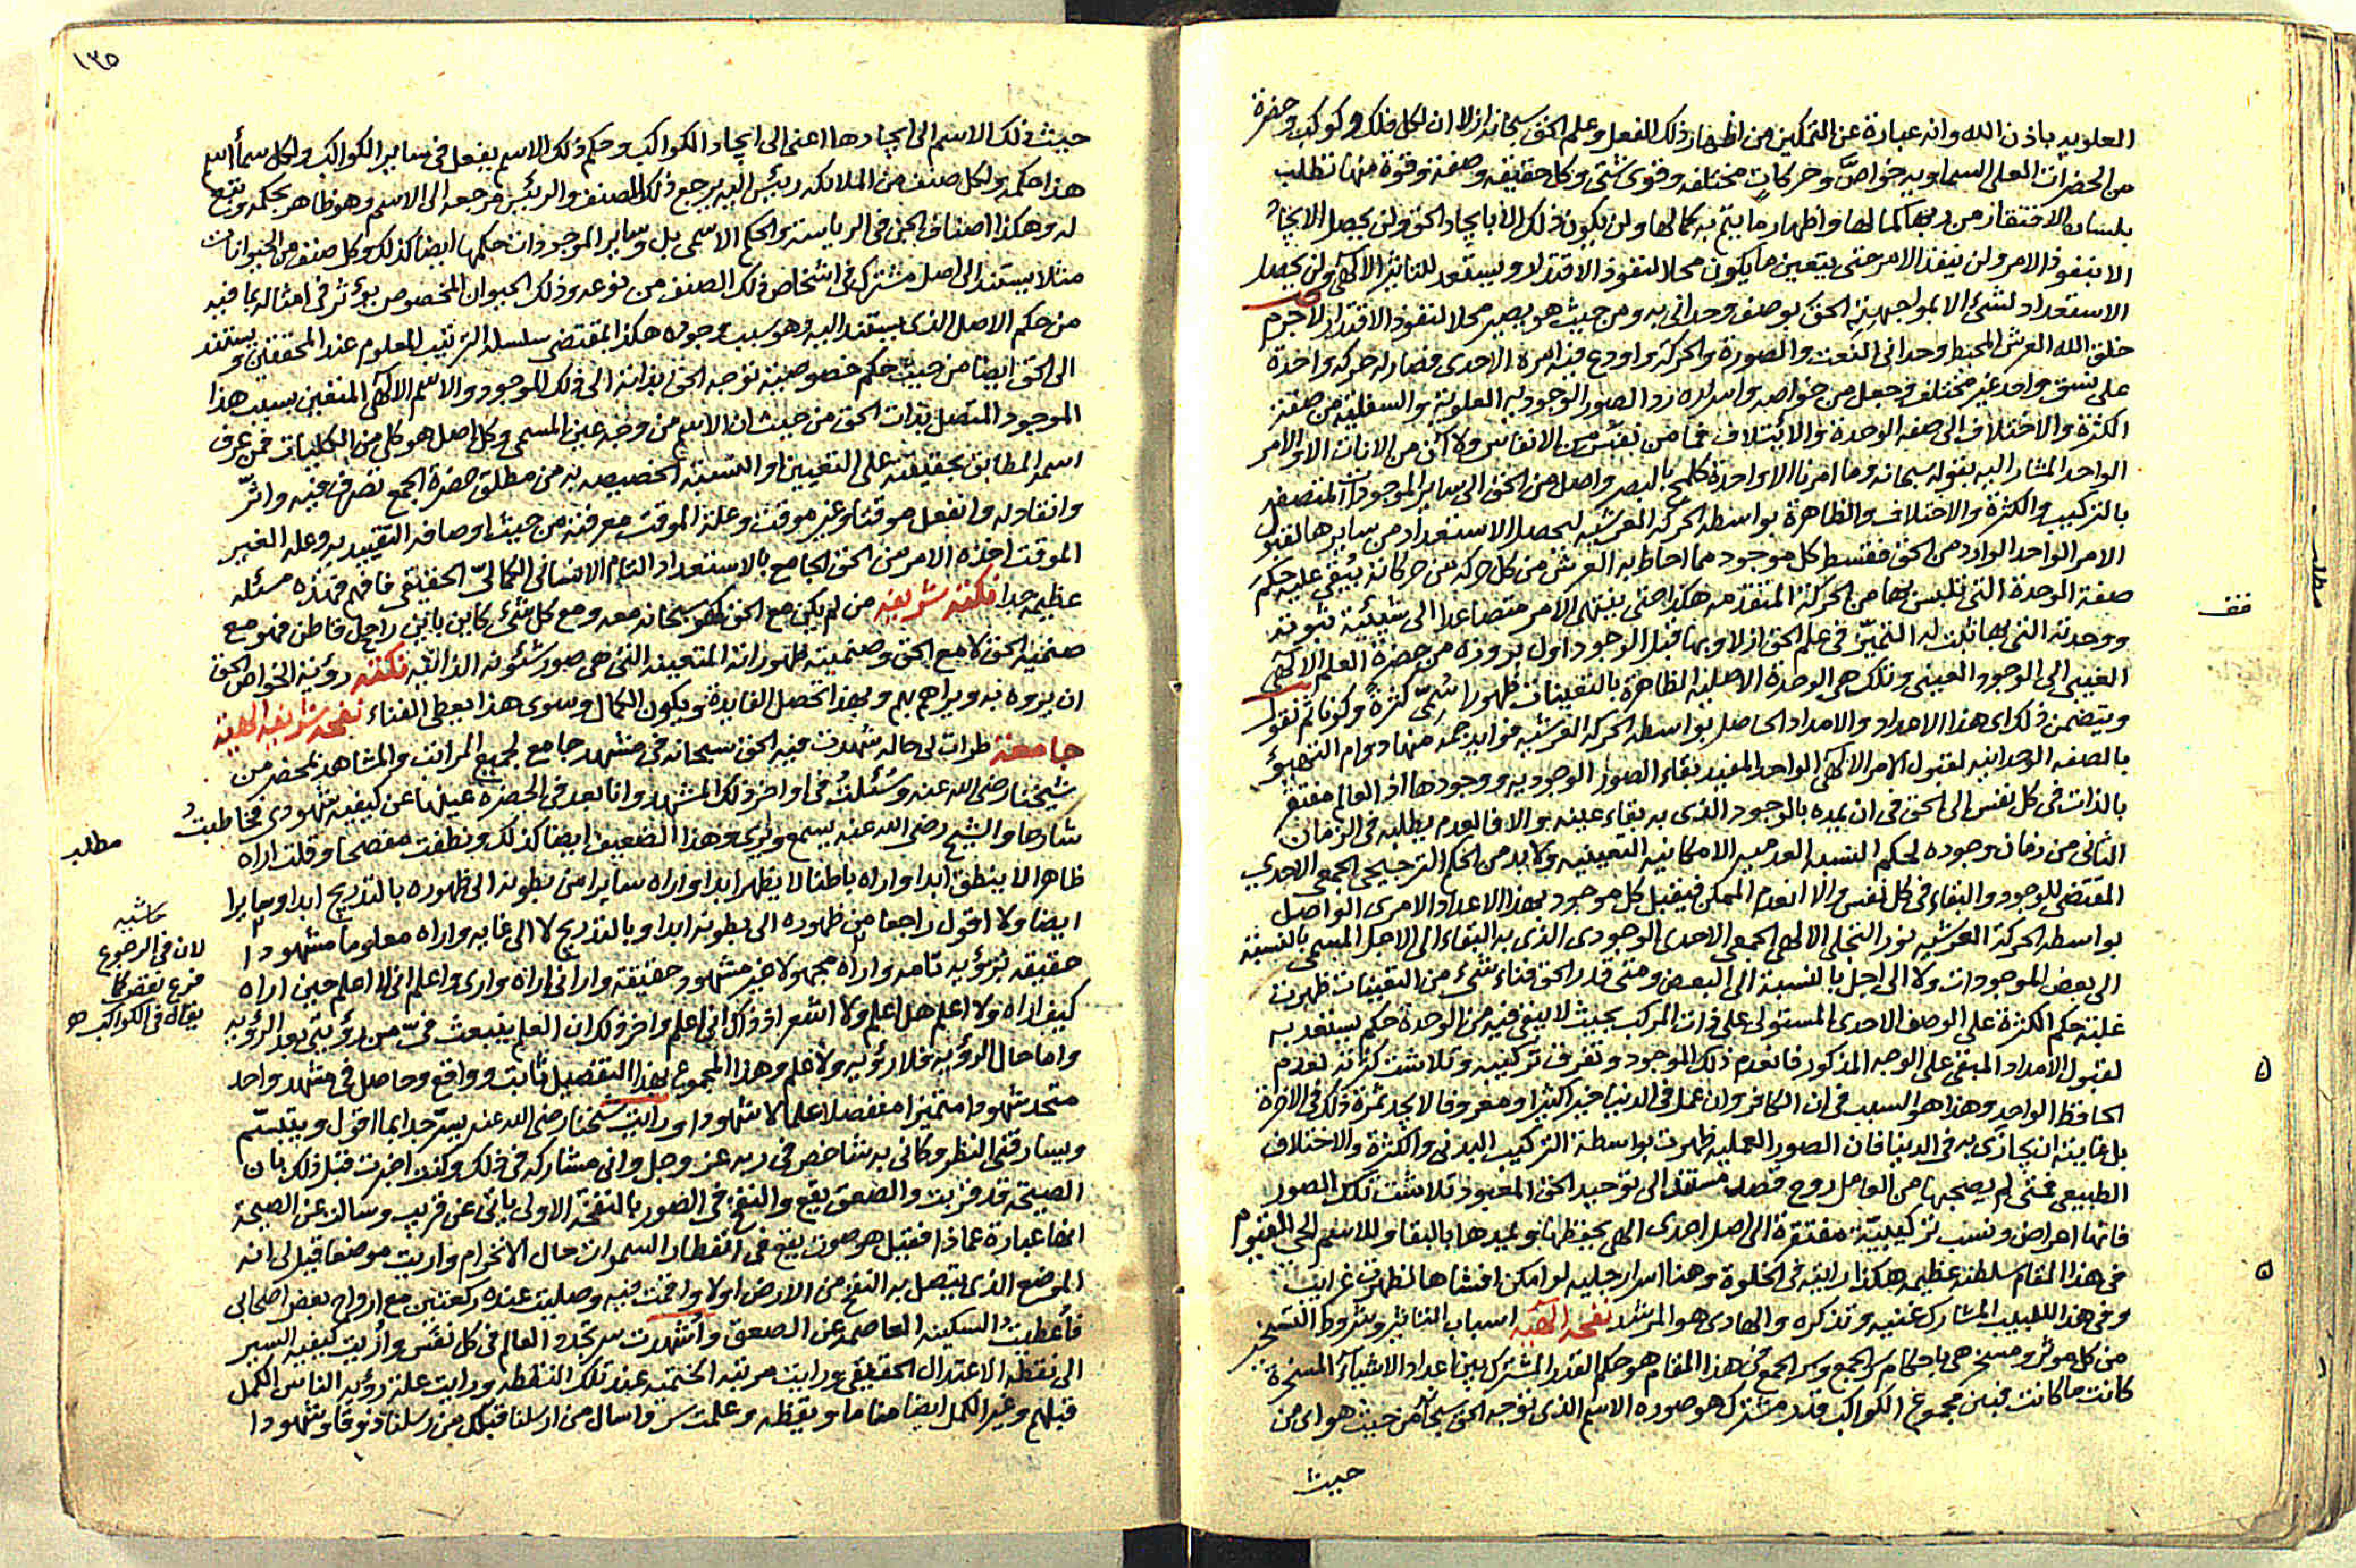 العلويه باذن الله وانه عبارة عن التمكين من اظهار ذلك الفعل وعلم الحق سبحانه ازلا ان لكل فلك وكوكب وحضرة
من الحضرات العلى السماويه خواصّ وحركات مختلفه وقوى شتى وكل حقيقه وصفة وقوة منها تطلب
بلسان الافتقار من ربها كمالها واظهار ما يتم به كمالها ولن يكون ذلك الا بايجاد الحق ولن يحصل الايجاد
الا بنفوذ الامر ولن ينفذ الامر حتى يتعين ما يكون محلا لنفوذ الاقتدار ويستعد للتاثير الالهى ولن يحصل
الاستعداد لشئ الا بمواجهة الحق بوصف وحدانى به ومن حيث هو يصير محلا لنفوذ الاقتدار لاجرم
خلق الله العرش المحيط وحدانى النعت والصورة والحركة واودع فيه السره الاحدى فصار له حركه واحدة
على نسق واحد غير مختلف وجعل من خواصه واسراره رد الصور الوجوديه العلوية والسفلية من صفة
الكثرة والاختلاف الى صفه الوحدة والائتلاف فما من نفس من الانفاس ولا آن من الانات الا والامر
الواحد المشار اليه بقوله سبحانه وما امرنا الا واحدة كلمح بالبصر واصل من الحق الى ساير الموجودات المتصفة
بالتركيب والكثرة والاختلاف والظاهرة بواسطه الحركة العرشيه ليحصل الاستعداد من سايرها لقبول
الامر الواحد الوارد من الحق فقسط كل موجود مما احاط به العرش من كل حركه من حركاته يبقى عليه حكم
صفة الوحدة التى تلبس بها من الحركة المتقدمه هكذا حتى ينتهى الامر متصاعدا الى شيئية ثبوته
ووحدته التى بها ثبت له التميز فى علم الحق ازلا وبها قبل الوجود اول بروزه من حضرة العلم الالهى
الغيبى الى الوجود العينى وتلك هى الوحدة الاصليه الظاهرة بالتعينات ظهورا سُمّى كثرة وكونا ثم نقول
ويتضمن ذلك اى هذا الامداد والامداد الحاصل بواسطه الحركه العرشيه فوايد جمه منها دوام التهيؤ
بالصفه الوحدانيه لقبول الامر الالهى الواحد المفيد بقاء الصور الوجوديه ووجودها اذ العالم مفتقر
بالذات فى كل نفس الى الحق فى ان يمده بالوجود الذى به بقاء عينه والا فالعدم يطلبه فى الزمان
الثانى من زمان وجوده لحكم النسبه العدميه الامكانيه التعينيه ولا بد من الحكم الترجيحى الجمعى الاحدى
المقتضى للوجود والبقاء فى كل نفس والا انعدم الممكن فيقبل كل موجود بهذا الاعداد الامرى الواصل
بواسطه الحركة العرشيه نور التجلى الالهى الجمعى الاحدى الوجودى الذى به البقاء الى الاجل المسمى بالنسبة
الى بعض الموجودات ولا الى اجل بالنسبة الى البعض ومتى قدر الحق فناء شئ من التعينات ظهرت
غلبة حكم الكثرة على الوصف الاحدى المستولى على ذات المركب بحيث لا يبقى فيه من الوحدة حكم يستعد به
لقبول الامداد المبقى على الوجه المذكور فانعدم ذلك الموجود وتفرق تركيبه وتلاشت كثرته لعدم
الحافظ الواحد وهذا هو السبب فى ان الكافر وان عمل فى الدنيا خيرا كثيرا ومعروفا لا يجد ثمرة ذلك فى الاخرة
بل غايته ان يجازى به فى الدنيا فان الصور العمليه ظهرت بواسطة التركيب البدنى والكثرة والاختلاف
الطبيعى فمتى لم يصحبها من العامل روح قصد مستند الى توحيد الحق المعبود تلاشت تلك الصور
فانها اعراض ونسب تركيبيّة مفتقرة الى اصل احدى الهى يحفظها ويمدها بالبقا وللاسم الحى القيوم
فى هذا المقام سلطنة عظيمه هكذا رايته فى الخلوة وهنا اسرار جليه لو امكن افشاها لظهرت غرايب
وفى هذا للبيب المشارك غنية وتذكره والهادى هو المرشد نفحه الهيه اسباب التاثير وشروط التسخير
من كل موثر ومسخر هى باحكام سر الجمع وسر الجمع فى هذا المقام هو حكم القدر المشترك بين اعداد الاشياء المسخرة
كانت ما كانت فبين مجموع الكواكب قدر مشترك هو صوره الاسم الذى توجه الحق سبحانه من حيث هو اى من
حيث
قف
١٣٥
حيث ذلك الاسم الى ايجادها اعنى الى ايجاد الكواكب وحكم ذلك الاسم يفعل فى ساير الكواكب ولكل سماء اسم
هذا حكمه ولكل صنف من الملائكه رئيس اليه يرجع ذلك الصنف والرئيس مرجعه الى الاسم وهو ظاهر بحكمه وتبع
له وهكذا اصناف الجن فى الرياسة والحكم الاسمى بل وساير الموجودات حكمها ايضا كذلك وكل صنف من الحيوانات
مثلا يستند الى اصل مشترك فى اشخاص ذلك الصنف من نوعه وذلك الحيوان المخصوص يؤثر فى امثاله بما فيه
من حكم الاصل الذى يستند اليه وهو سبب وجوده هكذا بمقتضى سلسلة الترتيب المعلوم عند المحققين ويستند
الى الحق ايضا من حيث حكم خصوصية توجه الحق بذاته الى ذلك الموجود والاسم الالهى المتعين بسبب هذا
الموجود المتصل بذات الحق من حيث ان الاسم من وجه عين المسمى وكل اصل هو كلى من الكليات فمن عرف
اسمه المطابق بحقيقته على التعيين او النسبة الخصيصه به من مطلق حضرة الجمع تصرف فيه واثّر
وانقاد له وانفعل موقتا وغير موقت وعلة الموقت معرفته من حيث اوصافه التقييديه وعله الغير
الموقت اخذه الامر من الحق الجامع بالاستعداد التام الانسانى الكمالىّ الحقيقى فافهم فهذه مسئله
عظيمه جدا نكته شريفه من لم يكن مع الحق كهو سبحانه معه ومع كل شئ كاين باين راحل قاطن فهو مع
صنمية الحق لا مع الحق وصنميته ظهوراته المتعينه التى هى صور شئونه الذاتيه نكته رؤية الخواص الحق
ان يروه به ويراهم بهم وبهذا تحصل الفايدة ويكون الكمال وسوى هذا يعطى الفناء نفحه شريفه الهية
جامعة طرات لى حاله شهدت فيه الحق سبحانه فى مشهد جامع لجميع المراتب والمشاهد بمحضر من
شيخنا رضى الله عنه وسُئلتُ فى اواخر ذلك المشهد وانا بعد فى الحضره عينها عن كيفيه شهودى مخاطبتُ
شارحا والشيخ رضى الله عنه يسمع ويرى وهذا الضعيف ايضا كذلك ونطقت مفصحا وقلت اراه
ظاهرا لا ينطق ابدا واراه باطنا لا يظهر ابدا واراه سايرا من بطونه الى ظهوره بالتدريج ابدا وسايرا
ايضا ولا اقول راجعا من ظهوره الى بطونه ابدا وبالتدريج لا الى غايه واراه معلوما مشهودا
حقيقه برؤيه تامه واراه مجهولا غير مشهود حقيقة وارانى اراه وارى واعلم انى لا اعلم حين اراه
كيف اراه ولا اعلم هل اعلم ولا اشعر اذ ذاك انى اعلم واخر ذلك ان العلم ينبعث فىّ من رؤيتى بعد الرؤيه
واما حال الرؤيه فلا رؤيه ولا علم وهذا المجموع بهذا التفصيل ثابت وواقع وحاصل فى مشهد واحد
متحد شهودا متميزا مفصلا علما لا شهودا ورايت شيخنا رضى الله عنه يسرّ جدا بما اقول ويتبسّم
ويسارقنى النظر وكانى به شاخص فى ربه عز وجل وانى مشاركه فى ذلك وكنت اخبرت قبل ذلك بان
الصيحة قد قربت والصعق يقع والنفخ فى الصور بالنفخة الاولى ياتى عن قريب وسالت عن الصيحة
انها عبارة عماذا فقيل هو صوت يقع فى انفطار السموات حال الانخرام واريت موضعا قيل لى انه
الموضع الذى يتصل به النفخ من الارض اولا واقمت فيه وصليت عنده ركعتين مع ارواح بعض اصحابى
فأعطيتُ السكينه العاصمه عن الصعق وأشهدت سر تجدد العالم فى كل نفس وأريت كيفيه السير
الى نقطه الاعتدال الحقيقى ورايت مرتبه الختميه عند تلك النقطه ورايت علة رؤيه الناس الكمل
قبلهم وغير الكمل ايضا مناما ويقظه وعلمت سر واسال من ارسلنا قبلك من رسلنا ذوقا وشهودا
مطلب
حاشيه
لان فى الرجوع
فرع نقض كما
يقال فى الكواكب